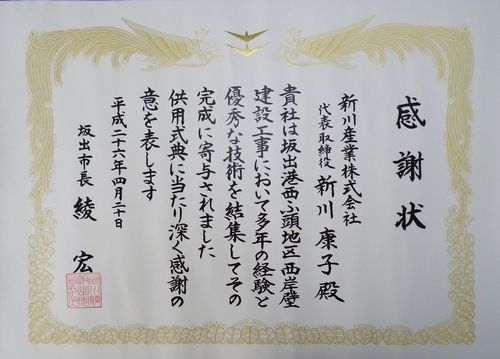 感謝状
新川産業株式会社
代表取締役 新川康子殿
貴社は坂出港西ふ頭地区西岸壁
建設工事において多年の経験と
優秀な技術を結集してその
完成に寄与されました
供用式典に当たり深く感謝の
意を表します
平成二十六年四月二十日
坂出市長 綾宏